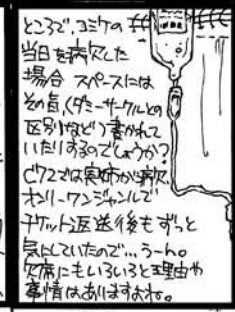 ところで、コミケの
当日を病欠した
場合 スペースには
その旨、(ダミーサークルとの
区別など)書かれて
いたりするのでしょうか?
C72では実姉が病欠、
オンリーワンジャンルで
チケット返送後もずっと
気にしていたので…うーん。
欠席にもいろいろと理由や
事情はありますよね。